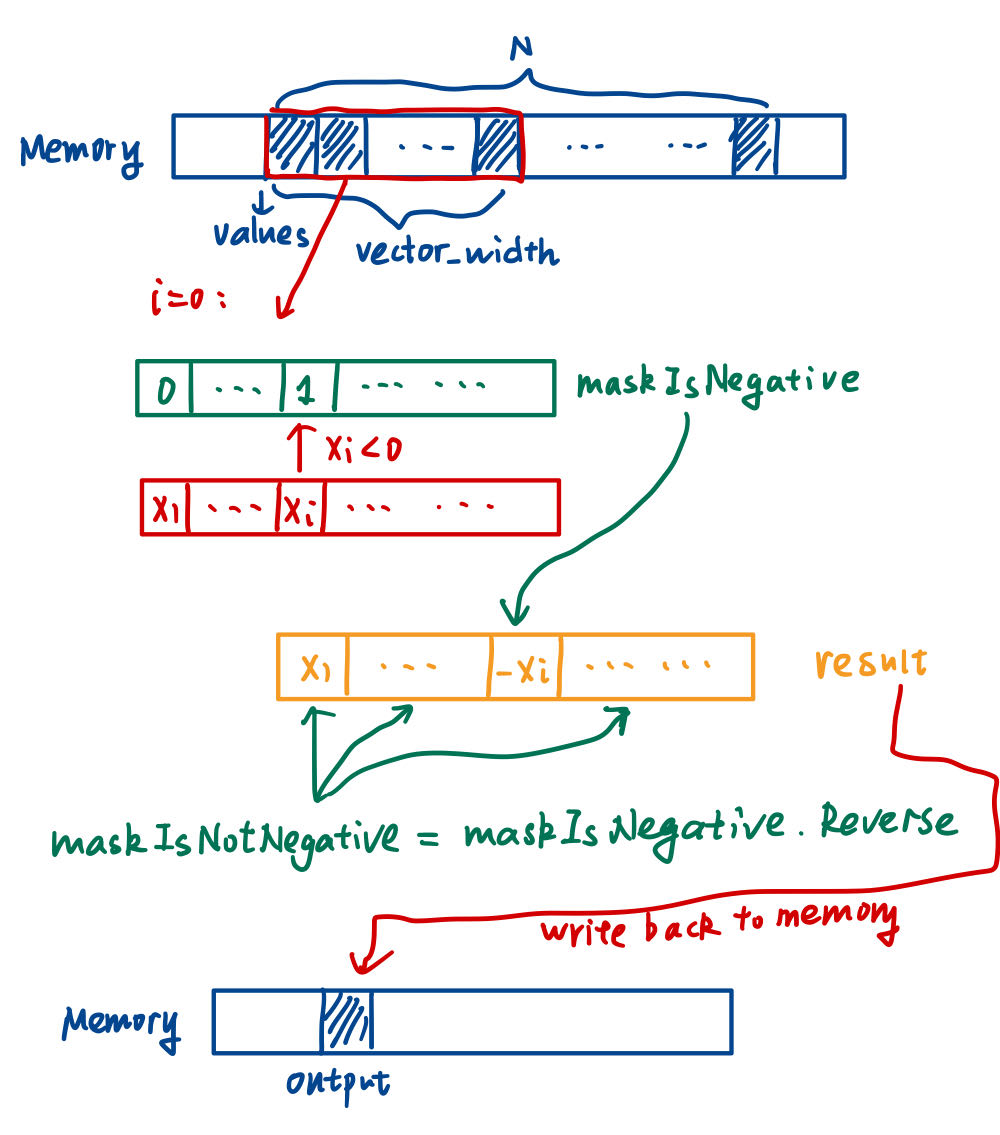 N
Memory ... ... ...
values
vector_width
i=0:
0 ... 1 ... ... maskIsNegative
xi<0
x1 ... xi ... ...
x1 ... -xi ... ... result
maskIsNotNegative = maskIsNegative.Reverse
write back to memory
Memory
output